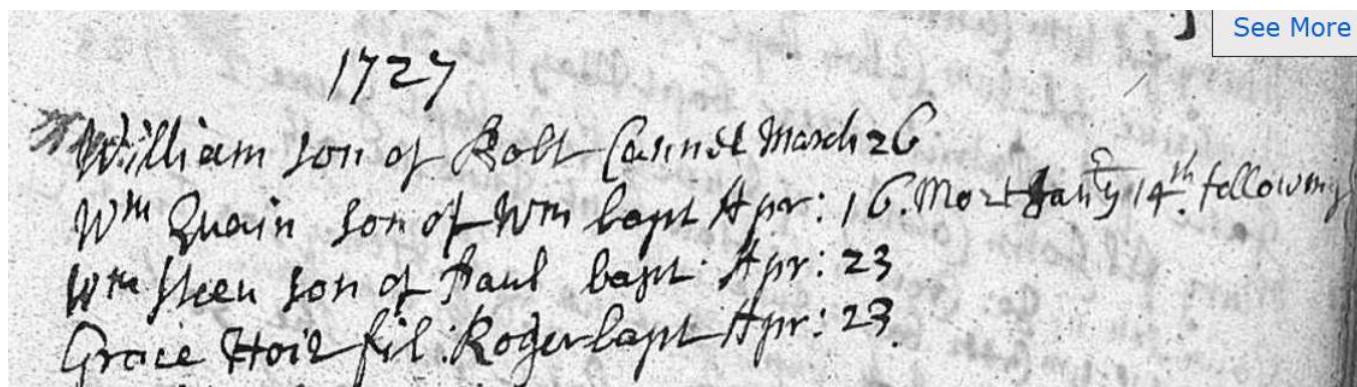 See More
1727
William son of Robt Cannel March 26
Wm Quain son of Wm bapt Apr: 16. Mort Janry 14th. following
Wm Steen son of Paul bapt: Apr: 23
Grace Hoi2 fil: Roger bapt Apr: 23.